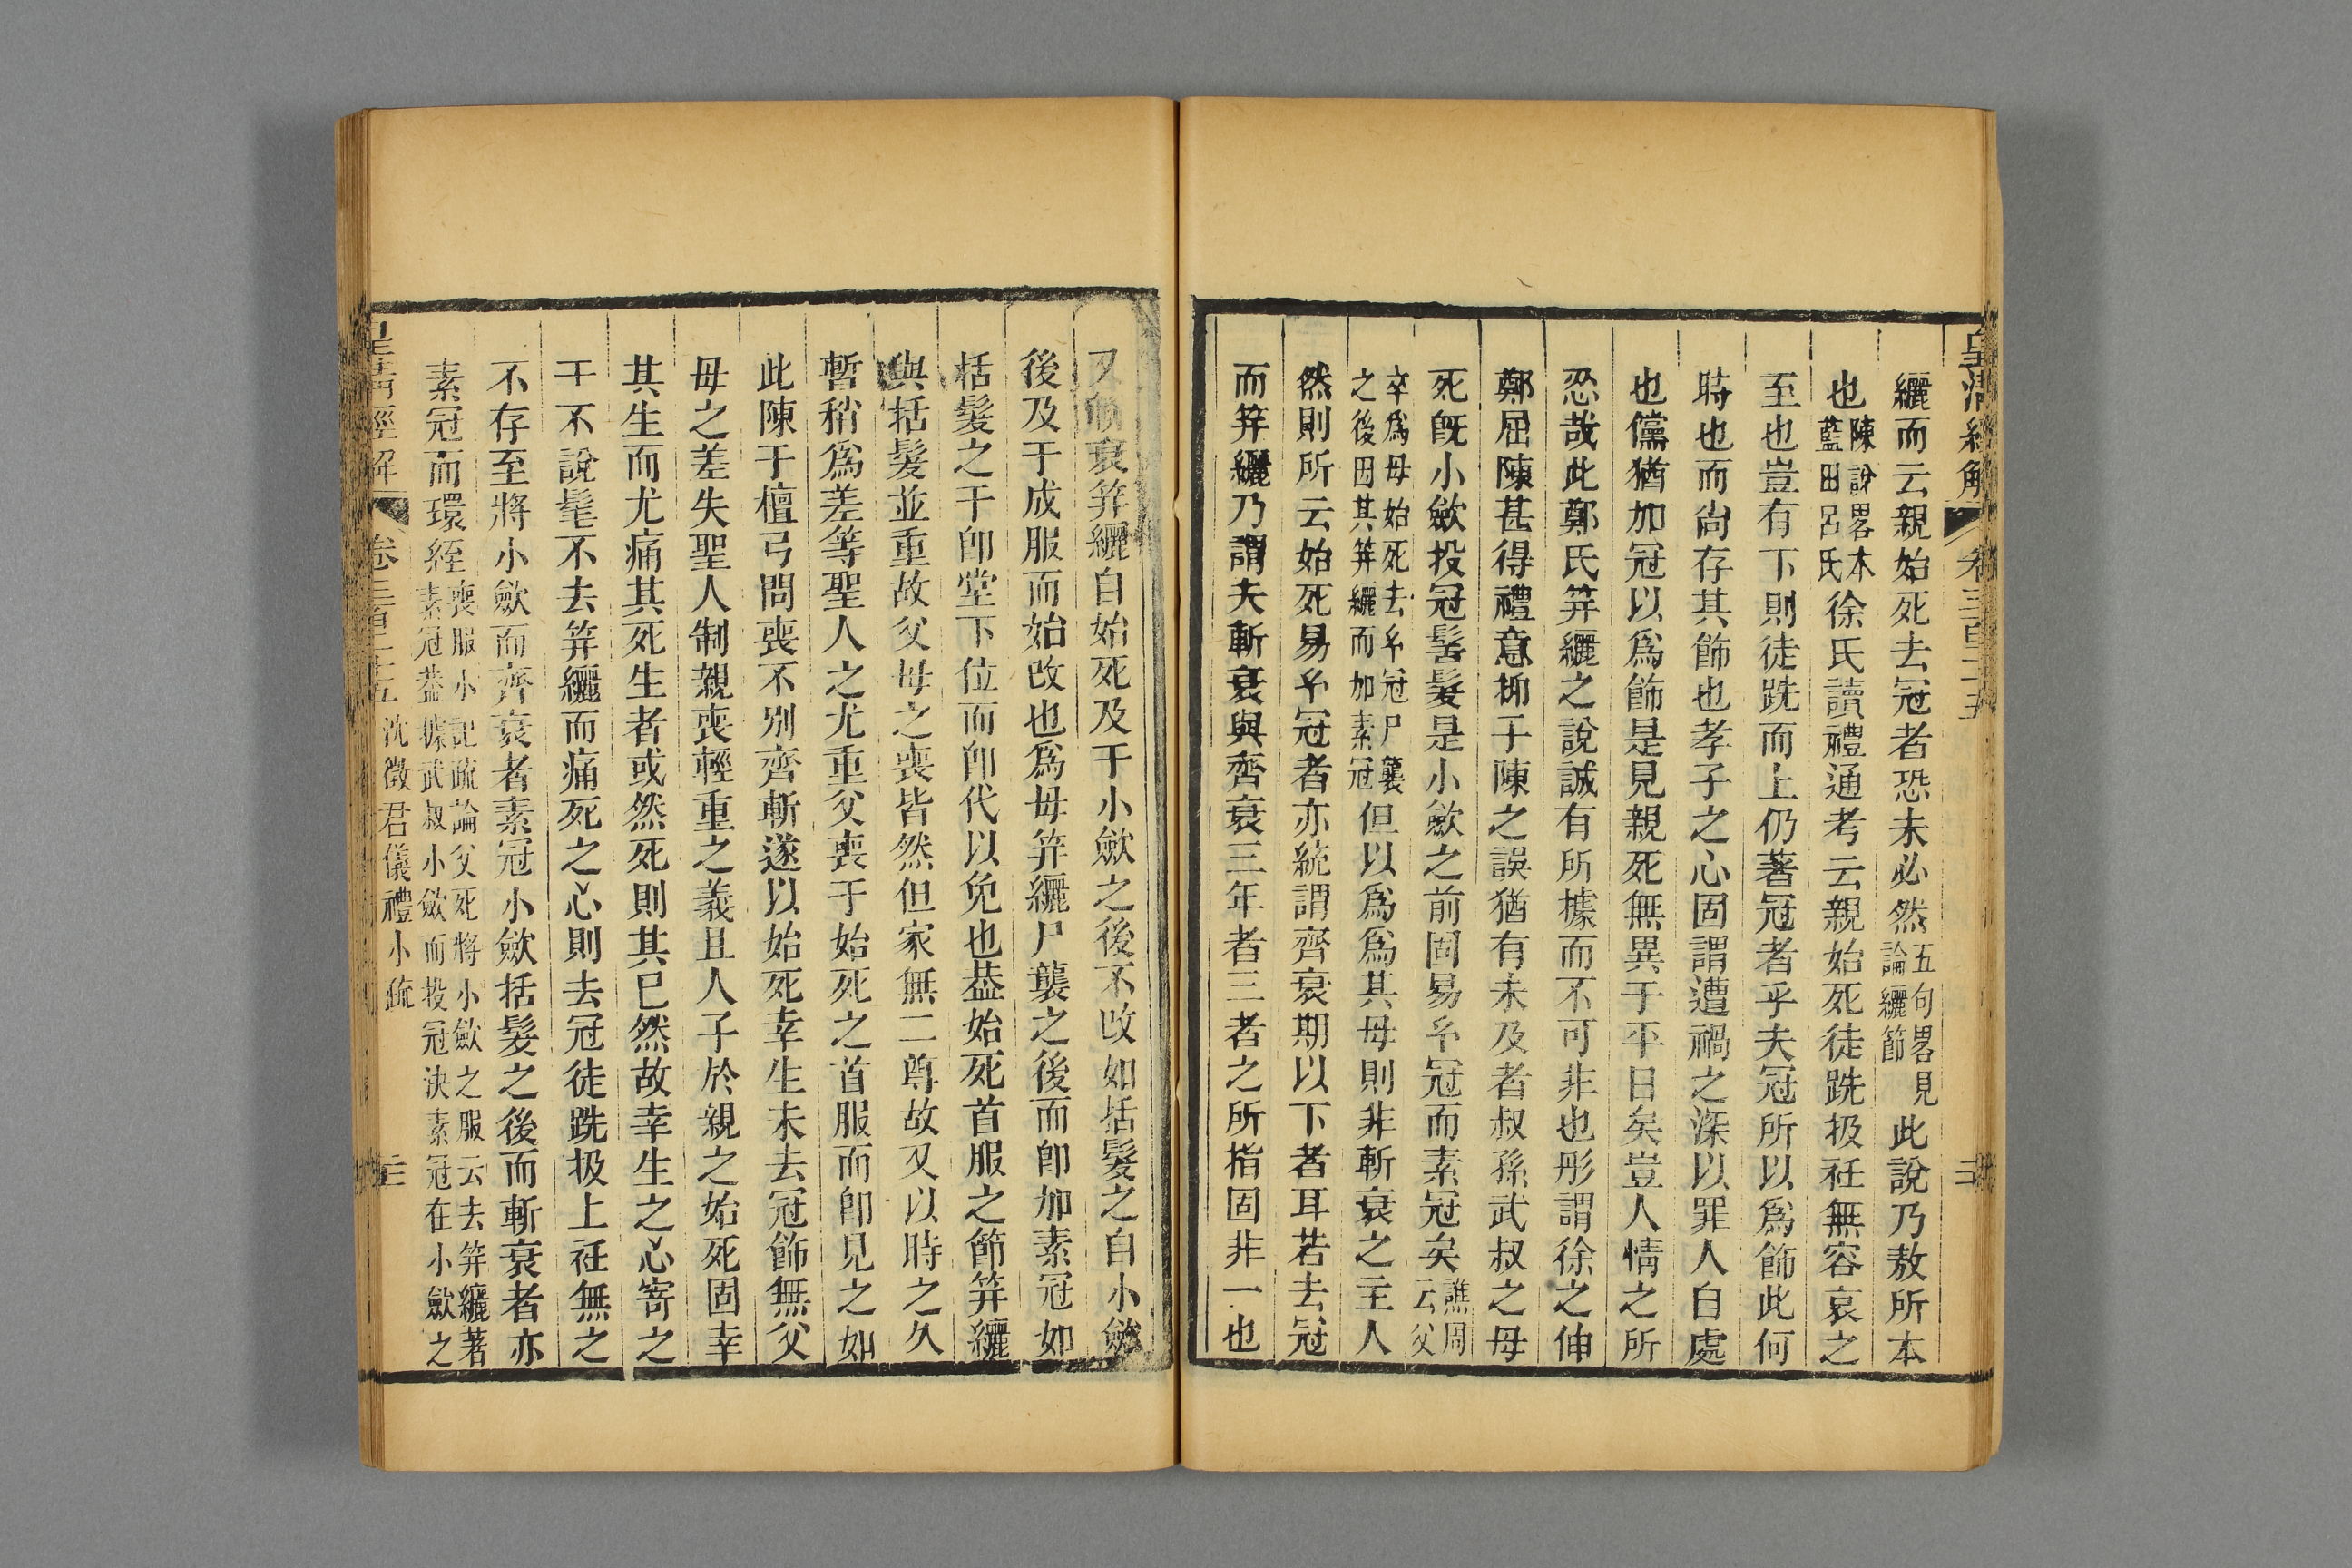 皇清經解 卷三百二十五 二
纚而云親始死去冠者恐未必然五句畧見論纚節此說乃敖所本
也陳說畧本藍田呂氏徐氏讀禮通考云親始死徒跣扱衽無容哀之
至也豈有下則徒跣而上仍著冠者乎夫冠所以爲飾此何
時也而尙存其飾也孝子之心固謂遭禍之深以罪人自處
也儻猶加冠以爲飾是見親死無異于平日矣豈人情之所
忍哉此鄭氏筓纚之說誠有所據而不可非也彤謂徐之伸
鄭屈陳甚得禮意抑于陳之誤猶有未及者叔孫武叔之母
死旣小斂投冠髺髮是小斂之前固易𤣥冠而素冠矣譙周云父
卒爲母始死去𤣥冠尸襲之後因其筓纚而加素冠但以爲爲其母則非斬衰之主人
然則所云始死易𤣥冠者亦統謂齊衰期以下者耳若去冠
而筓纚乃謂夫斬衰與齊衰三年者三者之所指固非一也
又斬衰筓纚自始死及于小斂之後不改如括髮之自小斂
後及于成服而始改也爲母筓纚尸襲之後而卽加素冠如
括髮之于卽堂下位而卽代以免也葢始死首服之節筓纚
與括髮並重故父母之喪皆然但家無二尊故又以時之久
暫稍爲差等聖人之尤重父喪于始死之首服而卽見之如
此陳于檀弓問喪不別齊斬遂以始死幸生未去冠飾無父
母之差失聖人制親喪輕重之義且人子於親之始死固幸
其生而尤痛其死生者或然死則其已然故幸生之心寄之
于不說髦不去筓纚而痛死之心則去冠徒跣扱上衽無之
不存至將小斂而齊衰者素冠小斂括髮之後而斬衰者亦
素冠而環絰喪服小記疏論父死將小斂之服云去筓纚著素冠葢據武叔小斂而投冠決素冠在小斂之
皇淸經解 卷三百二十五 沈徵君儀禮小疏 三